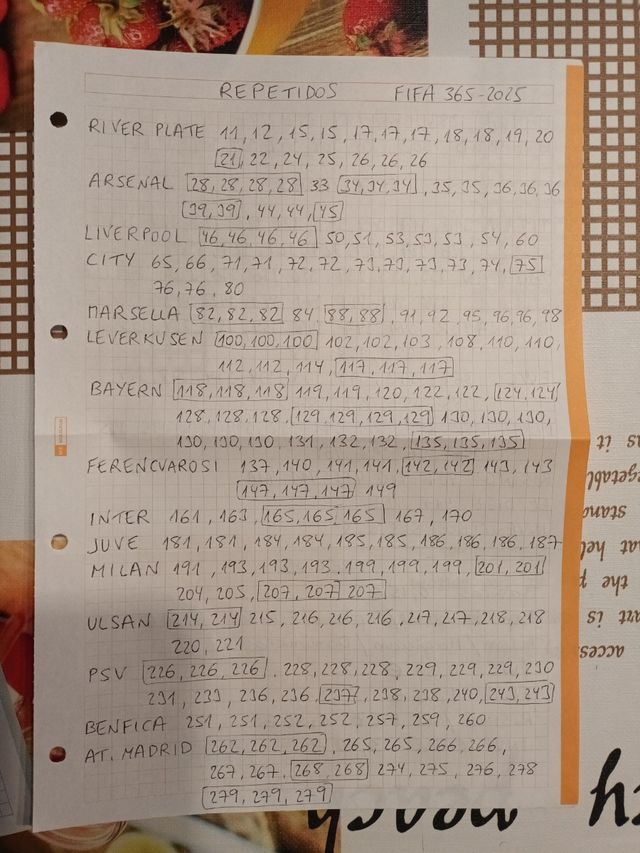 REPETIDOS FIFA 365-2025
RIVER PLATE 11, 12, 15, 15, 17, 17, 17, 18, 18, 19, 20
21, 22, 24, 25, 26, 26, 26
ARSENAL 28, 28, 28, 28 33 34, 34, 34, 35, 35, 36, 36, 36
39, 39, 44, 44, 45
LIVERPOOL 46, 46, 46, 46 50, 51, 53, 53, 53, 54, 60
CITY 65, 66, 71, 71, 72, 72, 73, 73, 73, 73, 74, 75
76, 76, 80
MARSELLA 82, 82, 82 84, 88, 88, 91, 92, 95, 96, 96, 98
LEVERKUSEN 100, 100, 100 102, 102, 103, 108, 110, 110,
112, 112, 114, 117, 117, 117
BAYERN 118, 118, 118 119, 119, 120, 122, 122, 124, 124
128, 128, 128, 129, 129, 129, 129 130, 130, 130,
130, 130, 130, 131, 132, 132, 135, 135, 135
FERENCVAROSI 137, 140, 141, 141, 142, 142 143, 143
147, 147, 147 149
INTER 161, 163, 165, 165 165 167, 170
JUVE 181, 181, 184, 184, 185, 185, 186, 186, 186, 187
MILAN 191, 193, 193, 193, 199, 199, 199, 201, 201
204, 205, 207, 207 207
ULSAN 214, 214 215, 216, 216, 216, 217, 217, 218, 218
220, 221
PSV 226, 226, 226, 228, 228, 228, 229, 229, 229, 230
231, 233, 236, 236, 237, 238, 238, 240, 243, 243
BENFICA 251, 251, 252, 252, 257, 259, 260
AT. MADRID 262, 262, 262, 265, 265, 266, 266,
267, 267, 268, 268 274, 275, 276, 278
279, 279, 279
as it
stand
the p
art is
access